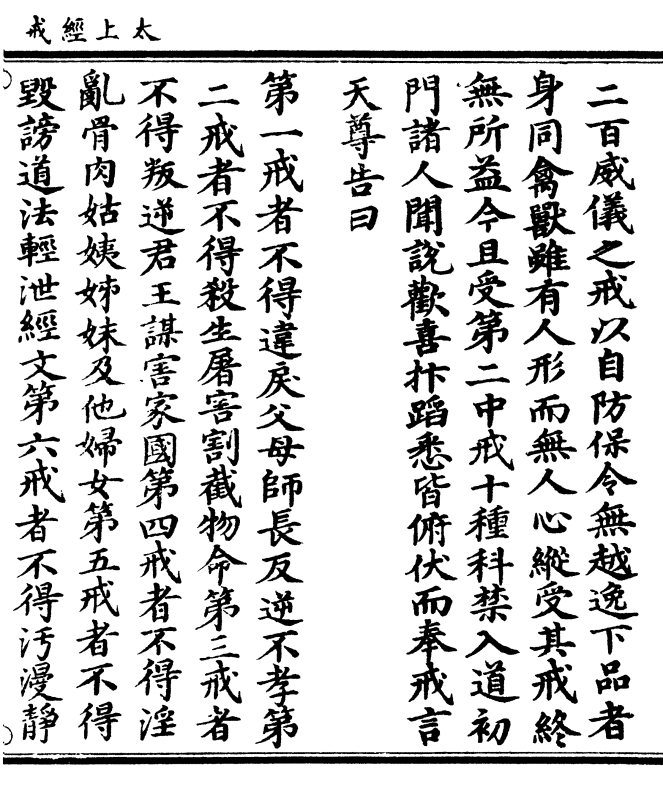 太上經戒
二百威儀之戒以自防保令無越逸下品者
身同禽獸雖有人形而無人心縱受其戒終
無所益今且受第二中戒十種科禁入道初
門諸人聞說歡喜抃蹈悉皆俯伏而奉戒言
天尊告曰
第一戒者不得違戾父母師長反逆不孝第
二戒者不得殺生屠害割截物命第三戒者
不得叛逆君王謀害家國第四戒者不得淫
亂骨肉姑姨姊妹及他婦女第五戒者不得
毀謗道法輕泄經文第六戒者不得汚漫靜